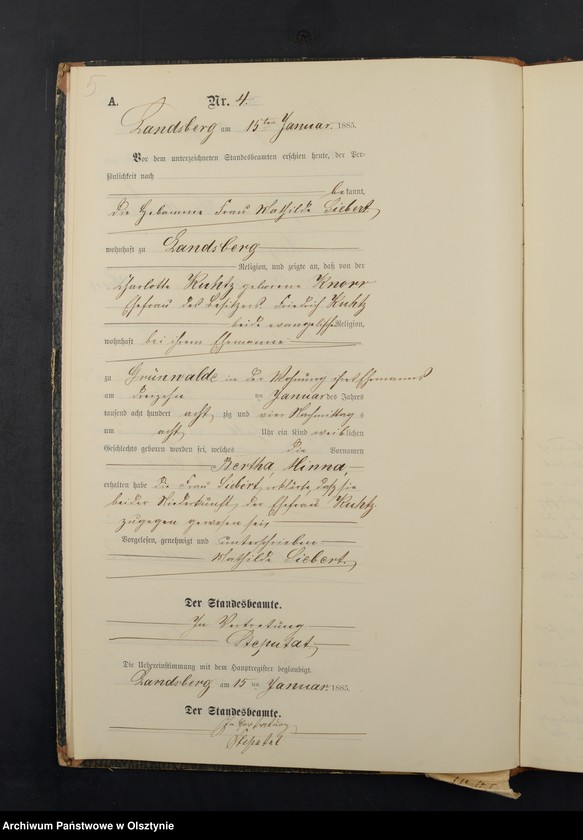 5
A. Nr. 4.
Landsberg am 15ten Januar 1885.
Vor dem unterzeichneten Standesbeamten erschien heute, der Per-
sönlichkeit nach
bekannt,
die Hebamme Frau Mathilde Liebert
wohnhaft zu Landsberg
Religion, und zeigte an, daß von der
Charlotte Kuhtz geborene Knorr
Ehefrau des Besitzers Friedrich Kuhtz
beide evangelischer Religion,
wohnhaft bei ihrem Ehemanne
zu Grünwalde in der Wohnung ihres Ehemannes
am dreizehnten Januar des Jahres
tausend acht hundert achtzig und vier Nachmittag s
um acht Uhr ein Kind weiblichen
Geschlechts geboren worden sei, welches die Vornamen
Bertha, Minna,
erhalten habe die Frau Liebert erklärte, daß sie
bei der Niederkunft der Ehefrau Kuhtz
zugegen gewesen sei
Vorgelesen, genehmigt und unterschrieben
Mathilde Liebert.
Der Standesbeamte.
In Vertretung
Die Uebereinstimmung mit dem Hauptregister beglaubigt.
Landsberg am 15ten Januar 1885.
Der Standesbeamte.
In Vertretung
Archiwum Państwowe w Olsztynie